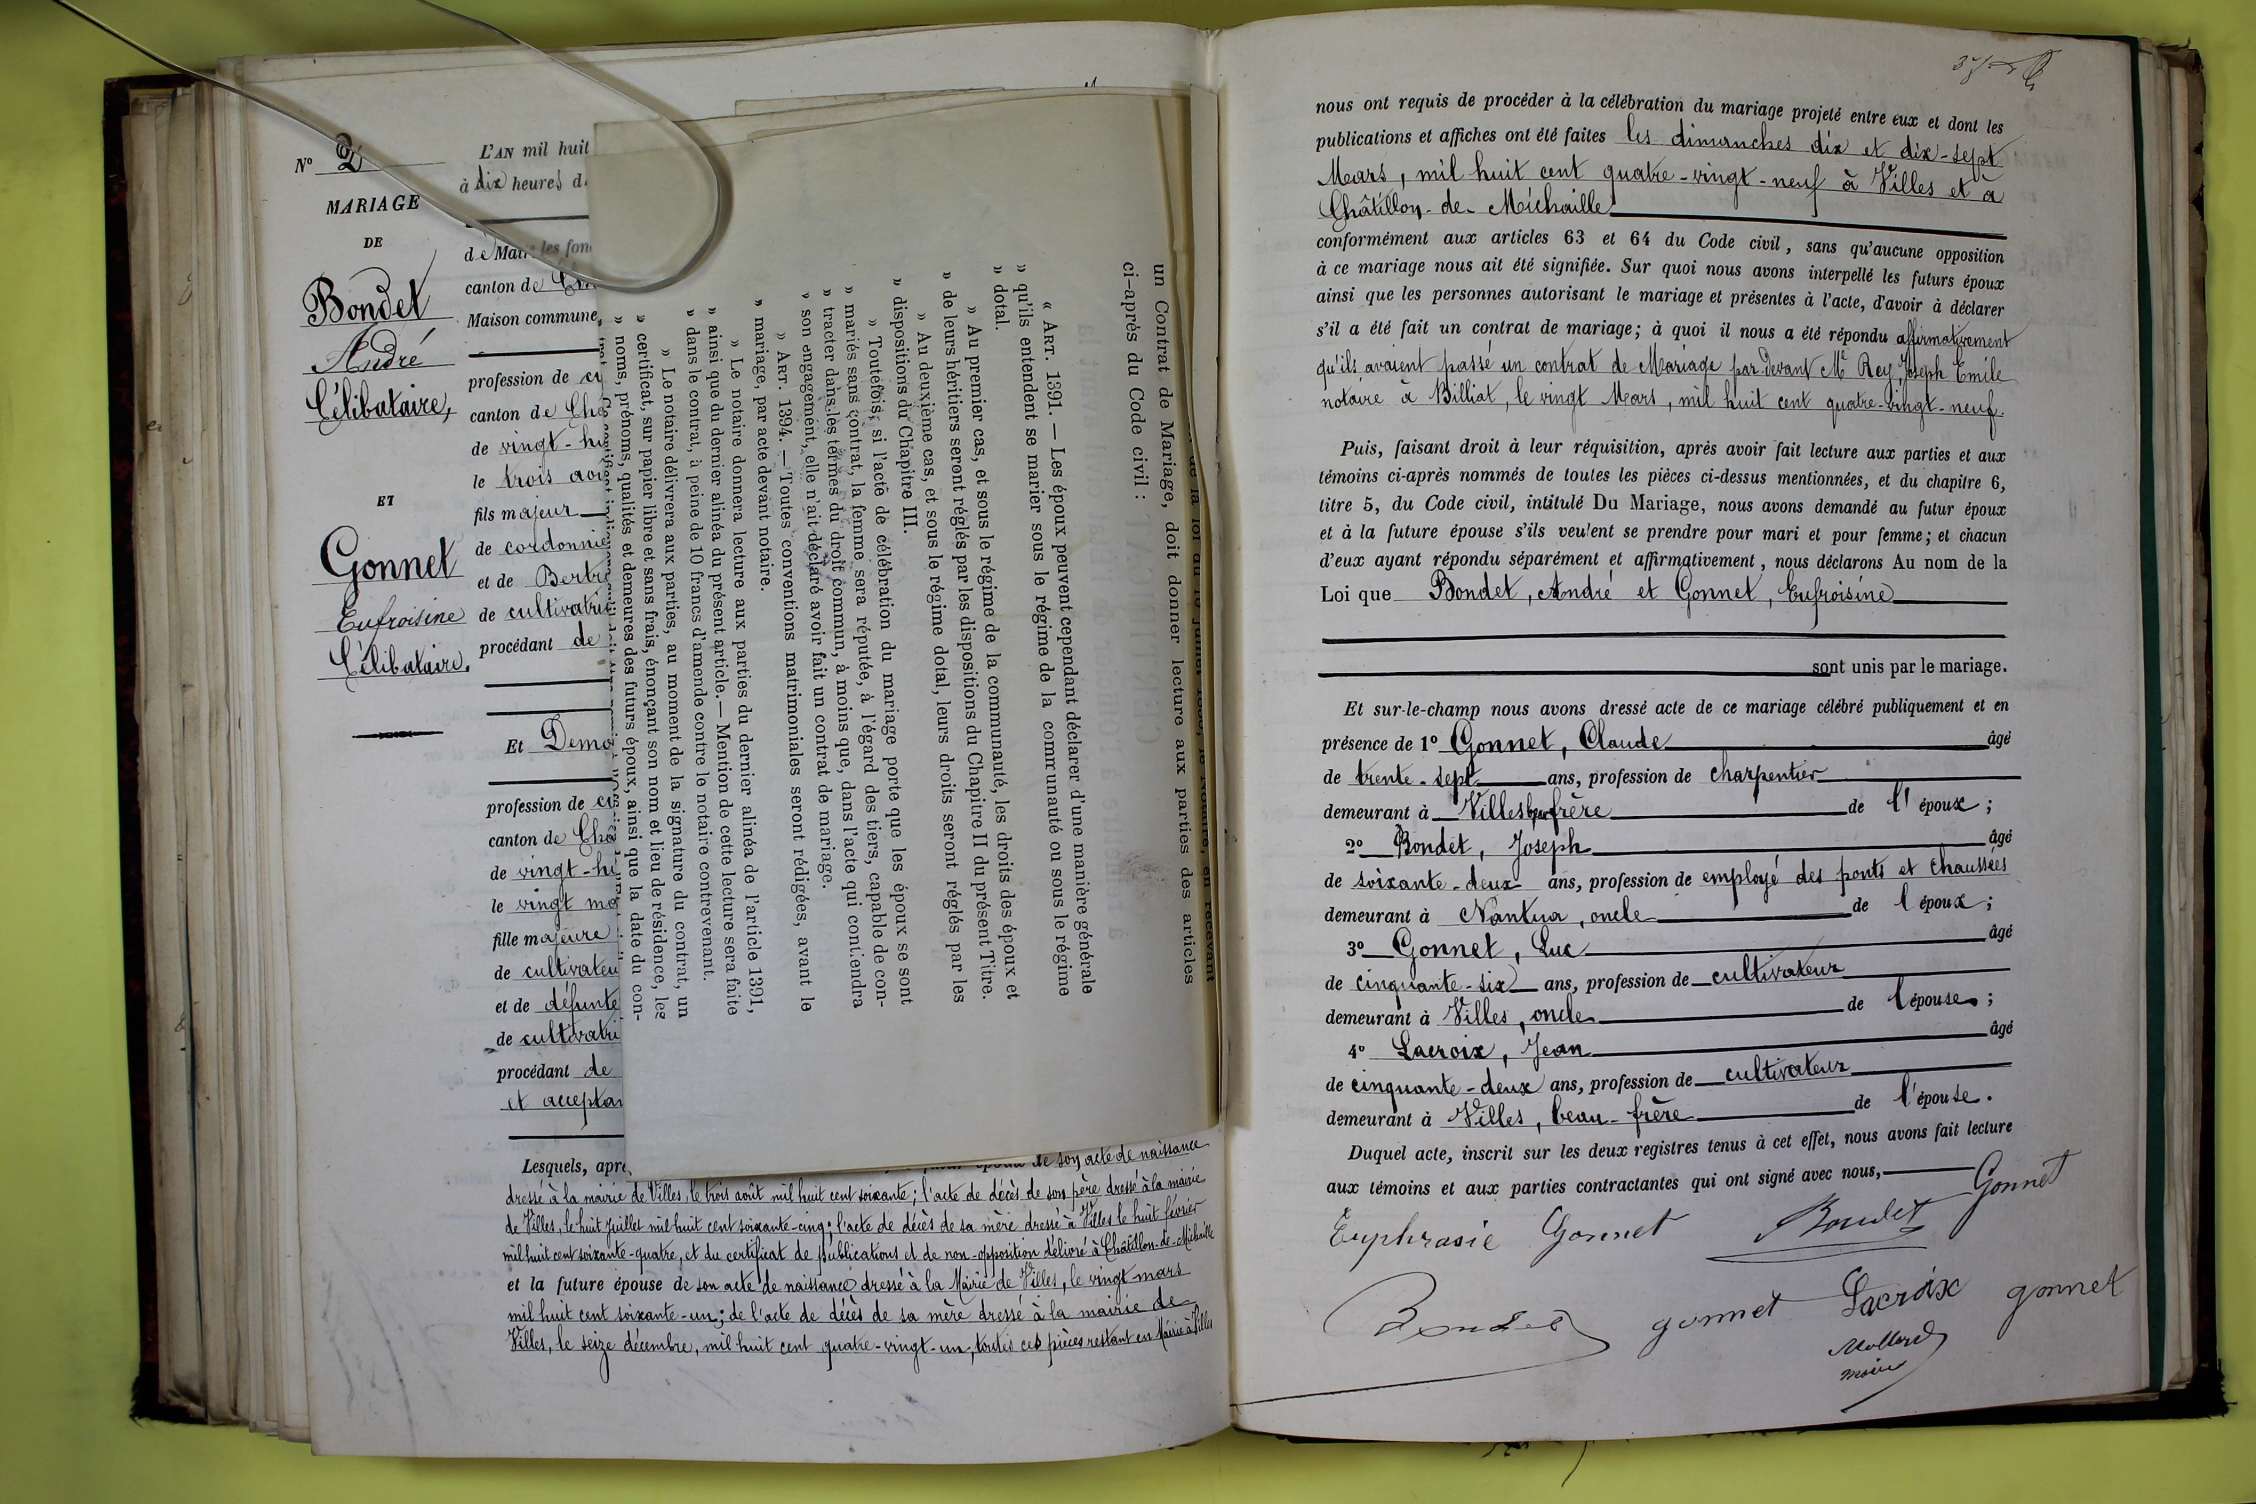 No 2
MARIAGE
DE
Bondet
André
Célibataire,
ET
Gonnet
Eufroisine
Célibataire.
L'AN mil huit
à dix heures d
de Maire les fon
canton de
Maison commune,
profession de cu
canton de Cha
de vingt-hu
le trois aoû
fils majeur
de cordonnie
et de Bertr
de cultivatri
procédant de
Et Demo
profession de cu
canton de Cha
de vingt-hu
le vingt ma
fille majeure
de cultivateu
et de défunte
de cultivatri
procédant de
et acceptan
Lesquels, apr
de son acte de naissance
dressé à la mairie de Villes, le trois août mil huit cent soixante; l'acte de décès de son père dressé à la mairie
de Villes, le huit Juillet mil huit cent soixante-cinq; l'acte de décès de sa mère dressé à Villes le huit février
mil huit cent soixante-quatre, et du certificat de publications et de non-opposition délivré à Châtillon-de-Michaille
et la future épouse de son acte de naissance dressé à la Mairie de Villes, le vingt mars
mil huit cent soixante-un; de l'acte de décès de sa mère dressé à la mairie de
Villes, le seize décembre, mil huit cent quatre-vingt-un, toutes ces pièces restant en Mairie à Villes
un Contrat de Mariage, doit donner lecture aux parties des articles
ci-après du Code civil :
« ART. 1391. — Les époux peuvent cependant déclarer d'une manière générale
» qu'ils entendent se marier sous le régime de la communauté ou sous le régime
» dotal.
» Au premier cas, et sous le régime de la communauté, les droits des époux et
» de leurs héritiers seront réglés par les dispositions du Chapitre II du présent Titre.
» Au deuxième cas, et sous le régime dotal, leurs droits seront réglés par les
» dispositions du Chapitre III.
» Toutefois, si l'acte de célébration du mariage porte que les époux se sont
» mariés sans contrat, la femme sera réputée, à l'égard des tiers, capable de con-
» tracter dans les termes du droit commun, à moins que, dans l'acte qui contiendra
» son engagement, elle n'ait déclaré avoir fait un contrat de mariage.
» ART. 1394. — Toutes conventions matrimoniales seront rédigées, avant le
» mariage, par acte devant notaire.
» Le notaire donnera lecture aux parties du dernier alinéa de l'article 1391,
» ainsi que du dernier alinéa du présent article. — Mention de cette lecture sera faite
» dans le contrat, à peine de 10 francs d'amende contre le notaire contrevenant.
» Le notaire délivrera aux parties, au moment de la signature du contrat, un
» certificat, sur papier libre et sans frais, énonçant son nom et lieu de résidence, les
» noms, prénoms, qualités et demeures des futurs époux, ainsi que la date du con-
nous ont requis de procéder à la célébration du mariage projeté entre eux et dont les
publications et affiches ont été faites les dimanches dix et dix-sept
Mars, mil huit cent quatre-vingt-neuf à Villes et à
Châtillon-de-Michaille
conformément aux articles 63 et 64 du Code civil, sans qu'aucune opposition
à ce mariage nous ait été signifiée. Sur quoi nous avons interpellé les futurs époux
ainsi que les personnes autorisant le mariage et présentes à l'acte, d'avoir à déclarer
s'il a été fait un contrat de mariage; à quoi il nous a été répondu affirmativement
qu'ils avaient passé un contrat de Mariage par devant Me Rey, Joseph Emile
notaire à Billiat, le vingt Mars, mil huit cent quatre-vingt-neuf.
Puis, faisant droit à leur réquisition, après avoir fait lecture aux parties et aux
témoins ci-après nommés de toutes les pièces ci-dessus mentionnées, et du chapitre 6,
titre 5, du Code civil, intitulé Du Mariage, nous avons demandé au futur époux
et à la future épouse s'ils veulent se prendre pour mari et pour femme; et chacun
d'eux ayant répondu séparément et affirmativement, nous déclarons Au nom de la
Loi que Bondet, André et Gonnet, Eufroisine
sont unis par le mariage.
Et sur-le-champ nous avons dressé acte de ce mariage célébré publiquement et en
présence de 1º Gonnet, Claude âgé
de trente-sept ans, profession de charpentier
demeurant à Villes beau frère de l'époux;
2º Bondet, Joseph âgé
de soixante-deux ans, profession de employé des ponts et chaussées
demeurant à Nantua, oncle de l'époux;
3º Gonnet, Luc âgé
de cinquante-six ans, profession de cultivateur
demeurant à Villes, oncle de l'épouse;
4º Lacroix, Jean âgé
de cinquante-deux ans, profession de cultivateur
demeurant à Villes, beau-frère de l'épouse.
Duquel acte, inscrit sur les deux registres tenus à cet effet, nous avons fait lecture
aux témoins et aux parties contractantes qui ont signé avec nous,
Gonnet
Euphrasie Gonnet Bondet
Bondet gonnet Lacroix gonnet
Mollard
maire